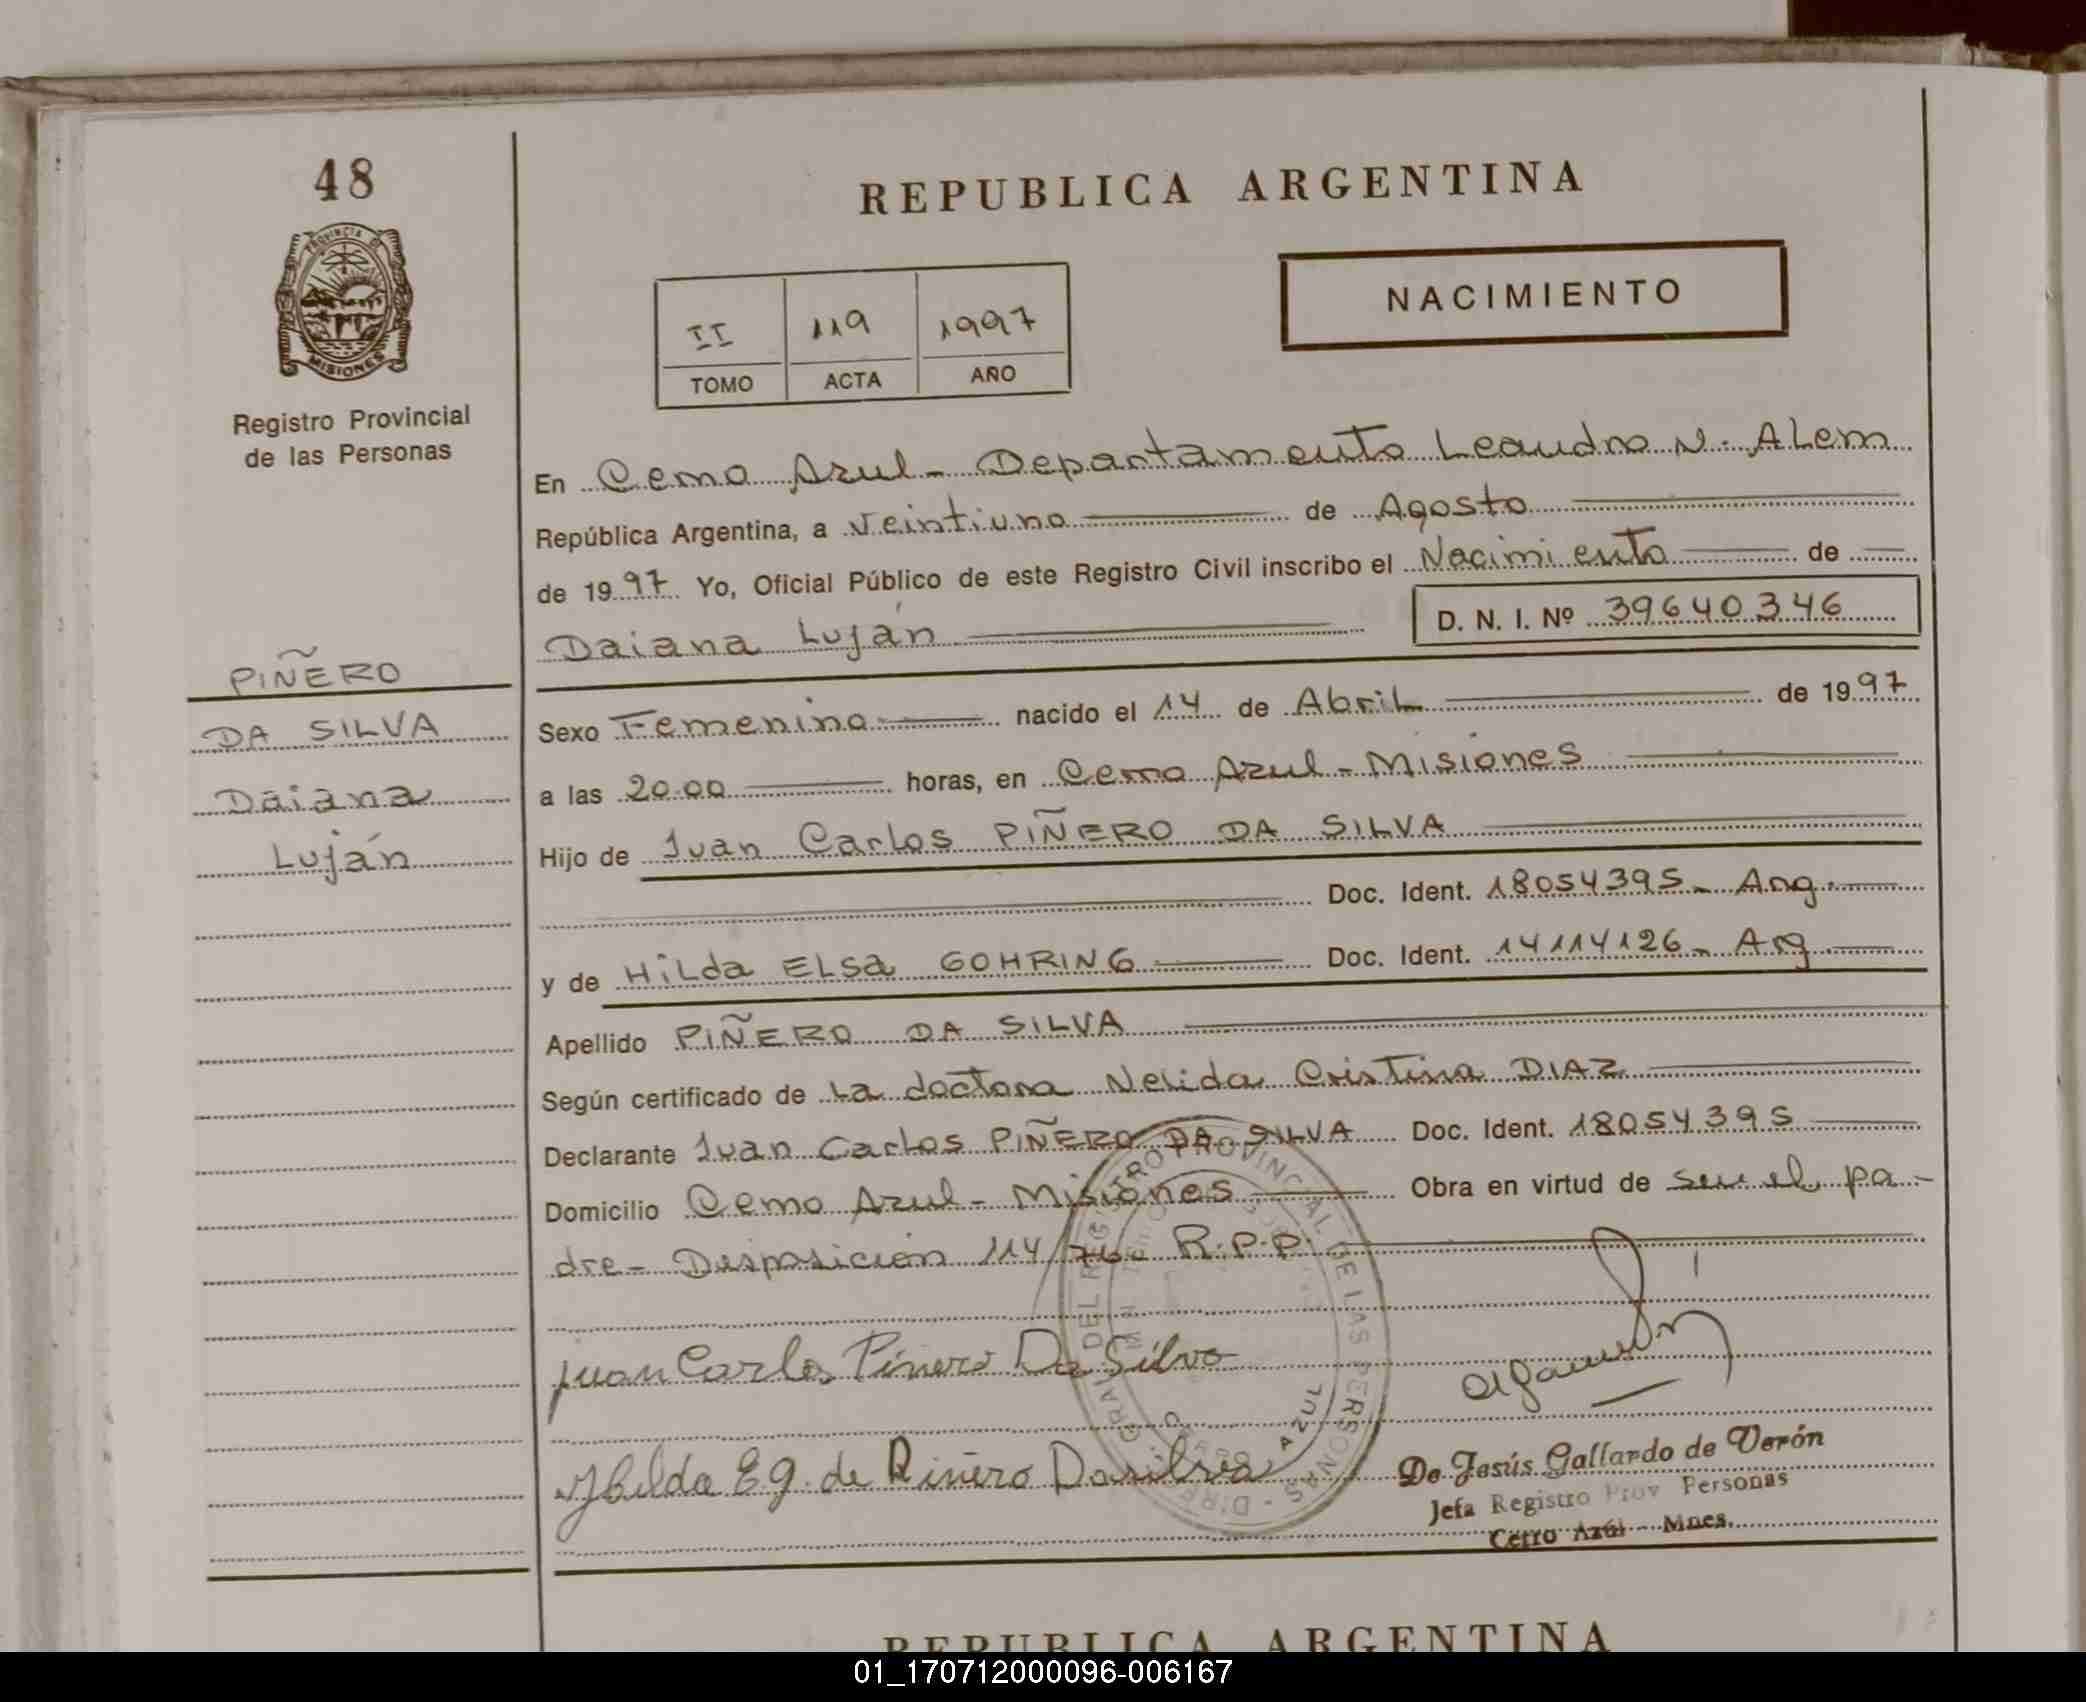 48
PROVINCIA DE
MISIONES
Registro Provincial
de las Personas
PIÑERO
DA SILVA
Daiana
Luján
REPUBLICA ARGENTINA
II 119 1997
TOMO ACTA AÑO
NACIMIENTO
En Cerro Azul - Departamento Leandro N. ALem
República Argentina, a veintiuno de Agosto
de 1997 Yo, Oficial Público de este Registro Civil inscribo el Nacimiento de
Daiana Luján D. N. I. Nº 39640346
Sexo Femenino nacido el 14 de Abril de 1997
a las 20.00 horas, en Cerro Azul - Misiones
Hijo de Juan Carlos PIÑERO DA SILVA
Doc. Ident. 18054395 - Arg.
y de HiLda ELsa GOHRING Doc. Ident. 14114126 - Arg
Apellido PIÑERO DA SILVA
Según certificado de La doctora Nelida Cristina DIAZ
Declarante Juan Carlos PIÑERO DA SILVA Doc. Ident. 18054395
Domicilio Cerro Azul - Misiones Obra en virtud de ser el pa-
dre - Disposición 114/76 R.P.P.
juan Carlos Pinero Da Silva
Hilda E g. de Piñero Dasilva
DIREC. GRAL DEL REGISTRO PROVINCIAL DE LAS PERSONAS
CERRO AZUL
De Jesús Gallardo de Verón
Jefa Registro Prov Personas
Cerro Azúl - Mnes.
REPUBLICA ARGENTINA
01_170712000096-006167